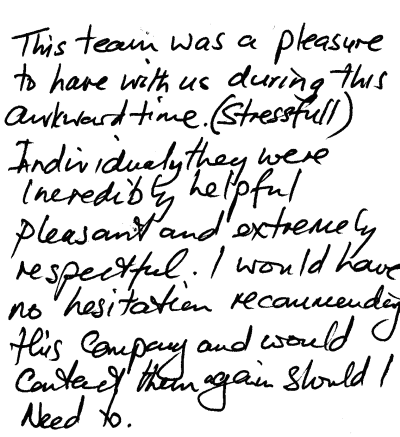 This team was a pleasure
to have with us during this
awkward time. (Stressfull)
Individualy they were
Incredibly helpful
pleasant and extremely
respectful. I would have
no hesitation recommending
this Company and would
Contact them again should I
Need to.